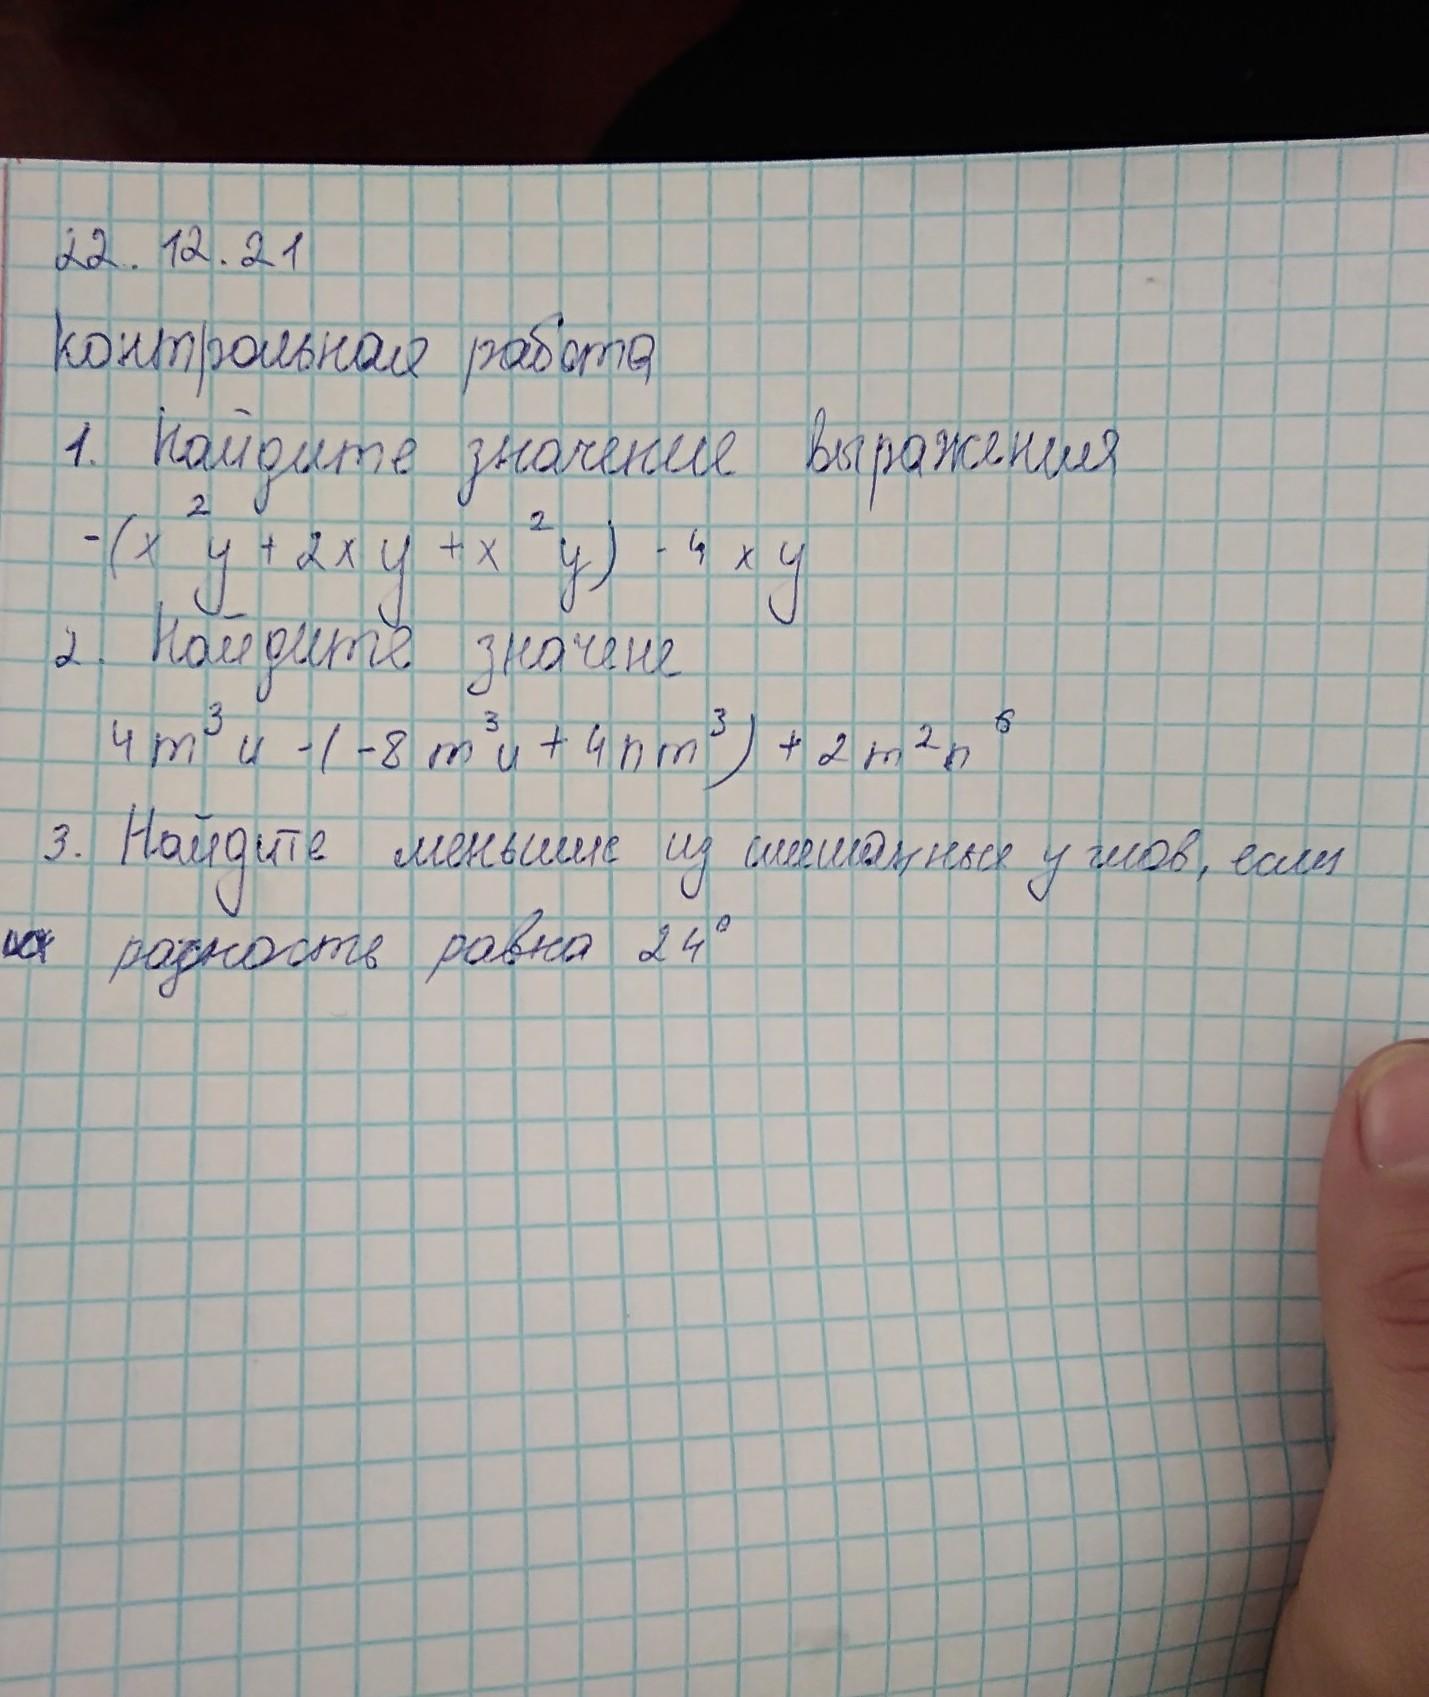 22.12.21
Контрольная работа
1. Найдите значение выражения
-(x²y + 2xy + x²y) - 4xy
2. Найдите значене
4m³n -(-8m³n + 4nm³) + 2m²n⁶
3. Найдите меньшие из смешанных углов, если
их разность равна 24°